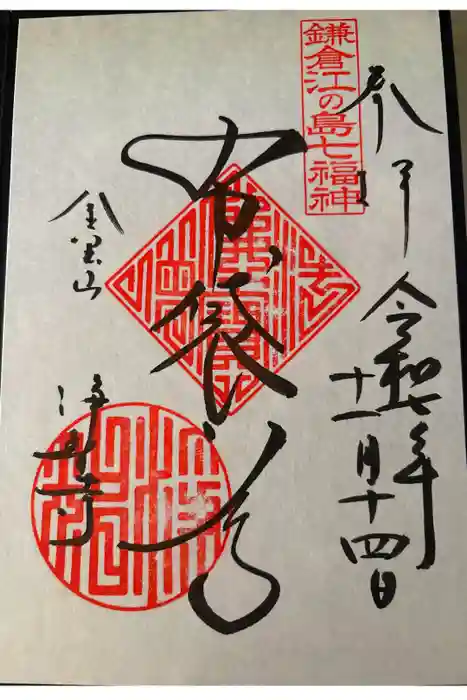 鎌倉江の島七福神
奉拝
令和七年
十一月十四日
布袋尊
金宝山
浄智寺